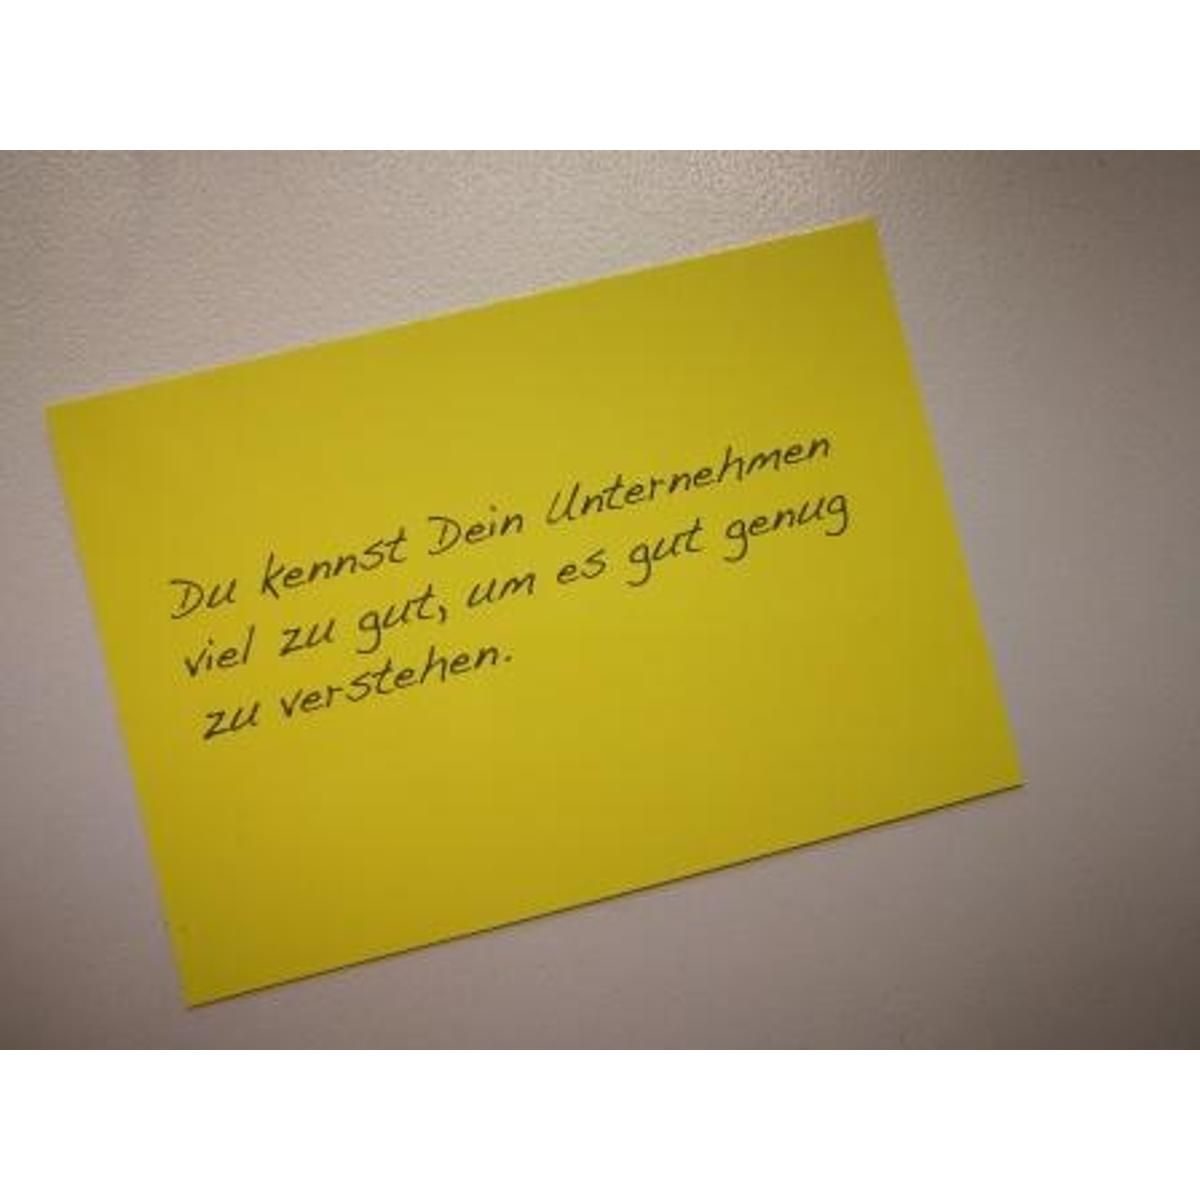 Du kennst Dein Unternehmen
viel zu gut, um es gut genug
zu verstehen.